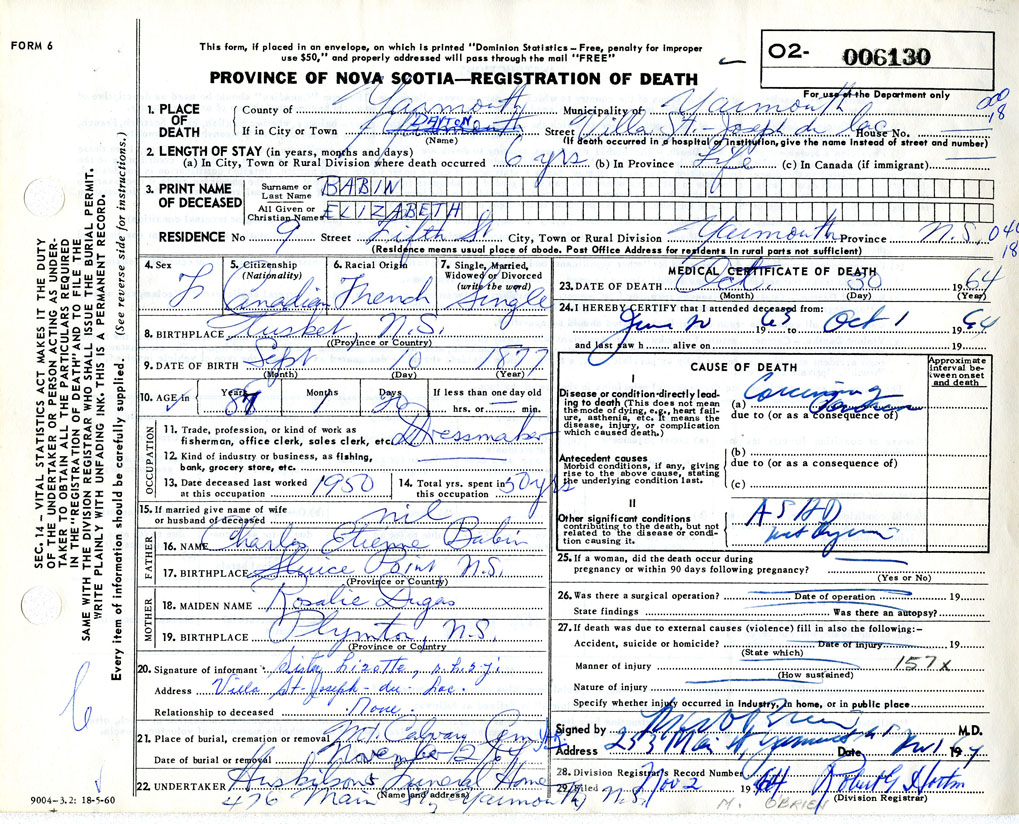 FORM 6
This form, if placed in an envelope, on which is printed "Dominion Statistics—Free, penalty for improper
use $50," and properly addressed will pass through the mail "FREE"
PROVINCE OF NOVA SCOTIA—REGISTRATION OF DEATH
O2- 006130
For use of the Department only
1. PLACE OF DEATH
County of Yarmouth Municipality of Yarmouth
000 18
If in City or Town DAYTON Street Villa St-Joseph du Lac House No.
(Name) (If death occurred in a hospital or institution, give the name instead of street and number)
2. LENGTH OF STAY (in years, months and days)
(a) In City, Town or Rural Division where death occurred 6 yrs (b) In Province Life (c) In Canada (if immigrant)
3. PRINT NAME OF DECEASED
Surname or Last Name BABIN
All Given or Christian Names ELIZABETH
RESIDENCE No 9 Street Fifth St City, Town or Rural Division Yarmouth Province N.S.
(Residence means usual place of abode. Post Office Address for residents in rural parts not sufficient)
4. Sex F
5. Citizenship (Nationality) Canadian
6. Racial Origin French
7. Single, Married, Widowed or Divorced (write the word) Single
8. BIRTHPLACE Tusket, N.S.
(Province or Country)
9. DATE OF BIRTH Sept 10 1877
(Month) (Day) (Year)
10. AGE in Years 87 Months 1 Days 20 If less than one day old hrs. or min.
OCCUPATION
11. Trade, profession, or kind of work as fisherman, office clerk, sales clerk, etc. Dressmaker
12. Kind of industry or business, as fishing, bank, grocery store, etc.
13. Date deceased last worked at this occupation 1950
14. Total yrs. spent in this occupation 50 yrs
15. If married give name of wife or husband of deceased nil
FATHER
16. NAME Charles Etienne Babin
17. BIRTHPLACE Sluice Point N.S.
(Province or Country)
MOTHER
18. MAIDEN NAME Rosalie Dugas
19. BIRTHPLACE Plympton, N.S.
(Province or Country)
20. Signature of informant Sister Lizette
Address Villa St-Joseph-du-Lac.
Relationship to deceased None.
21. Place of burial, cremation or removal Mt. Calvary Cem
Date of burial or removal November 2
22. UNDERTAKER Huskilson's Funeral Home
(Name and address)
476 Main St, Yarmouth, N.S.
9004-3.2: 18-5-60
MEDICAL CERTIFICATE OF DEATH
23. DATE OF DEATH Oct. 30 1964
(Month) (Day) (Year)
24. I HEREBY CERTIFY that I attended deceased from:
June 1963 to Oct 1 1964
and last saw h alive on 19
CAUSE OF DEATH
Approximate interval between onset and death
I
Disease or condition directly leading to death (This does not mean the mode of dying, e.g., heart failure, asthenia, etc. It means the disease, injury, or complication which caused death.)
(a) Carcinoma of
due to (or as a consequence of)
Antecedent causes
Morbid conditions, if any, giving rise to the above cause, stating the underlying condition last.
(b)
due to (or as a consequence of)
(c)
II
Other significant conditions contributing to the death, but not related to the disease or condition causing it.
ASHD
25. If a woman, did the death occur during pregnancy or within 90 days following pregnancy?
(Yes or No)
26. Was there a surgical operation? Date of operation 19
State findings Was there an autopsy?
27. If death was due to external causes (violence) fill in also the following:—
Accident, suicide or homicide? Date of injury 19
(State which)
Manner of injury 157x
(How sustained)
Nature of injury
Specify whether injury occurred in industry, in home, or in public place
Signed by O'Brien M.D.
Address Main St, Yarmouth Date Nov 1 19
28. Division Registrar's Record Number
29. Filed Nov 2 1964 Robert G Horton
M. O'BRIEN (Division Registrar)
SEC. 14—VITAL STATISTICS ACT MAKES IT THE DUTY
OF THE UNDERTAKER OR PERSON ACTING AS UNDER-
TAKER TO OBTAIN ALL THE PARTICULARS REQUIRED
IN THE "REGISTRATION OF DEATH" AND TO FILE THE
SAME WITH THE DIVISION REGISTRAR WHO SHALL ISSUE THE BURIAL PERMIT.
WRITE PLAINLY WITH UNFADING INK. THIS IS A PERMANENT RECORD.
Every item of information should be carefully supplied. (See reverse side for instructions.)